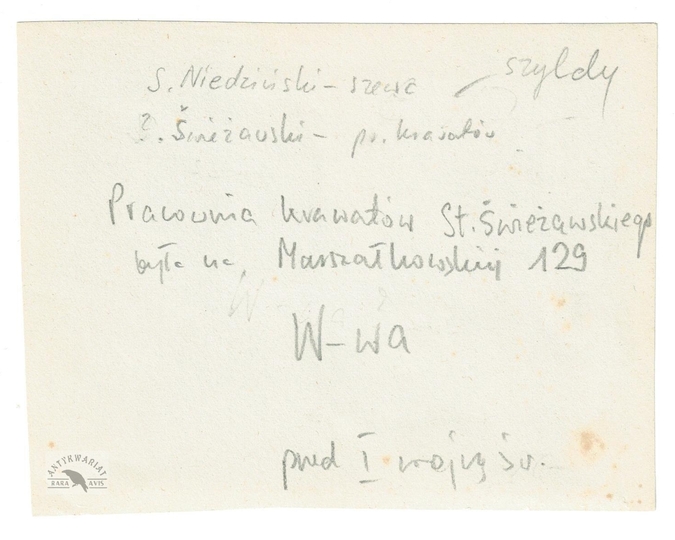 S. Niedziński – szewc / szyldy
?. Świeżawski – pr. krawatów
Pracownia krawatów St. Świeżawskiego
była na Marszałkowskiej 129
W-wa
przed I wojną św.
ANTYKWARIAT
RARA AVIS